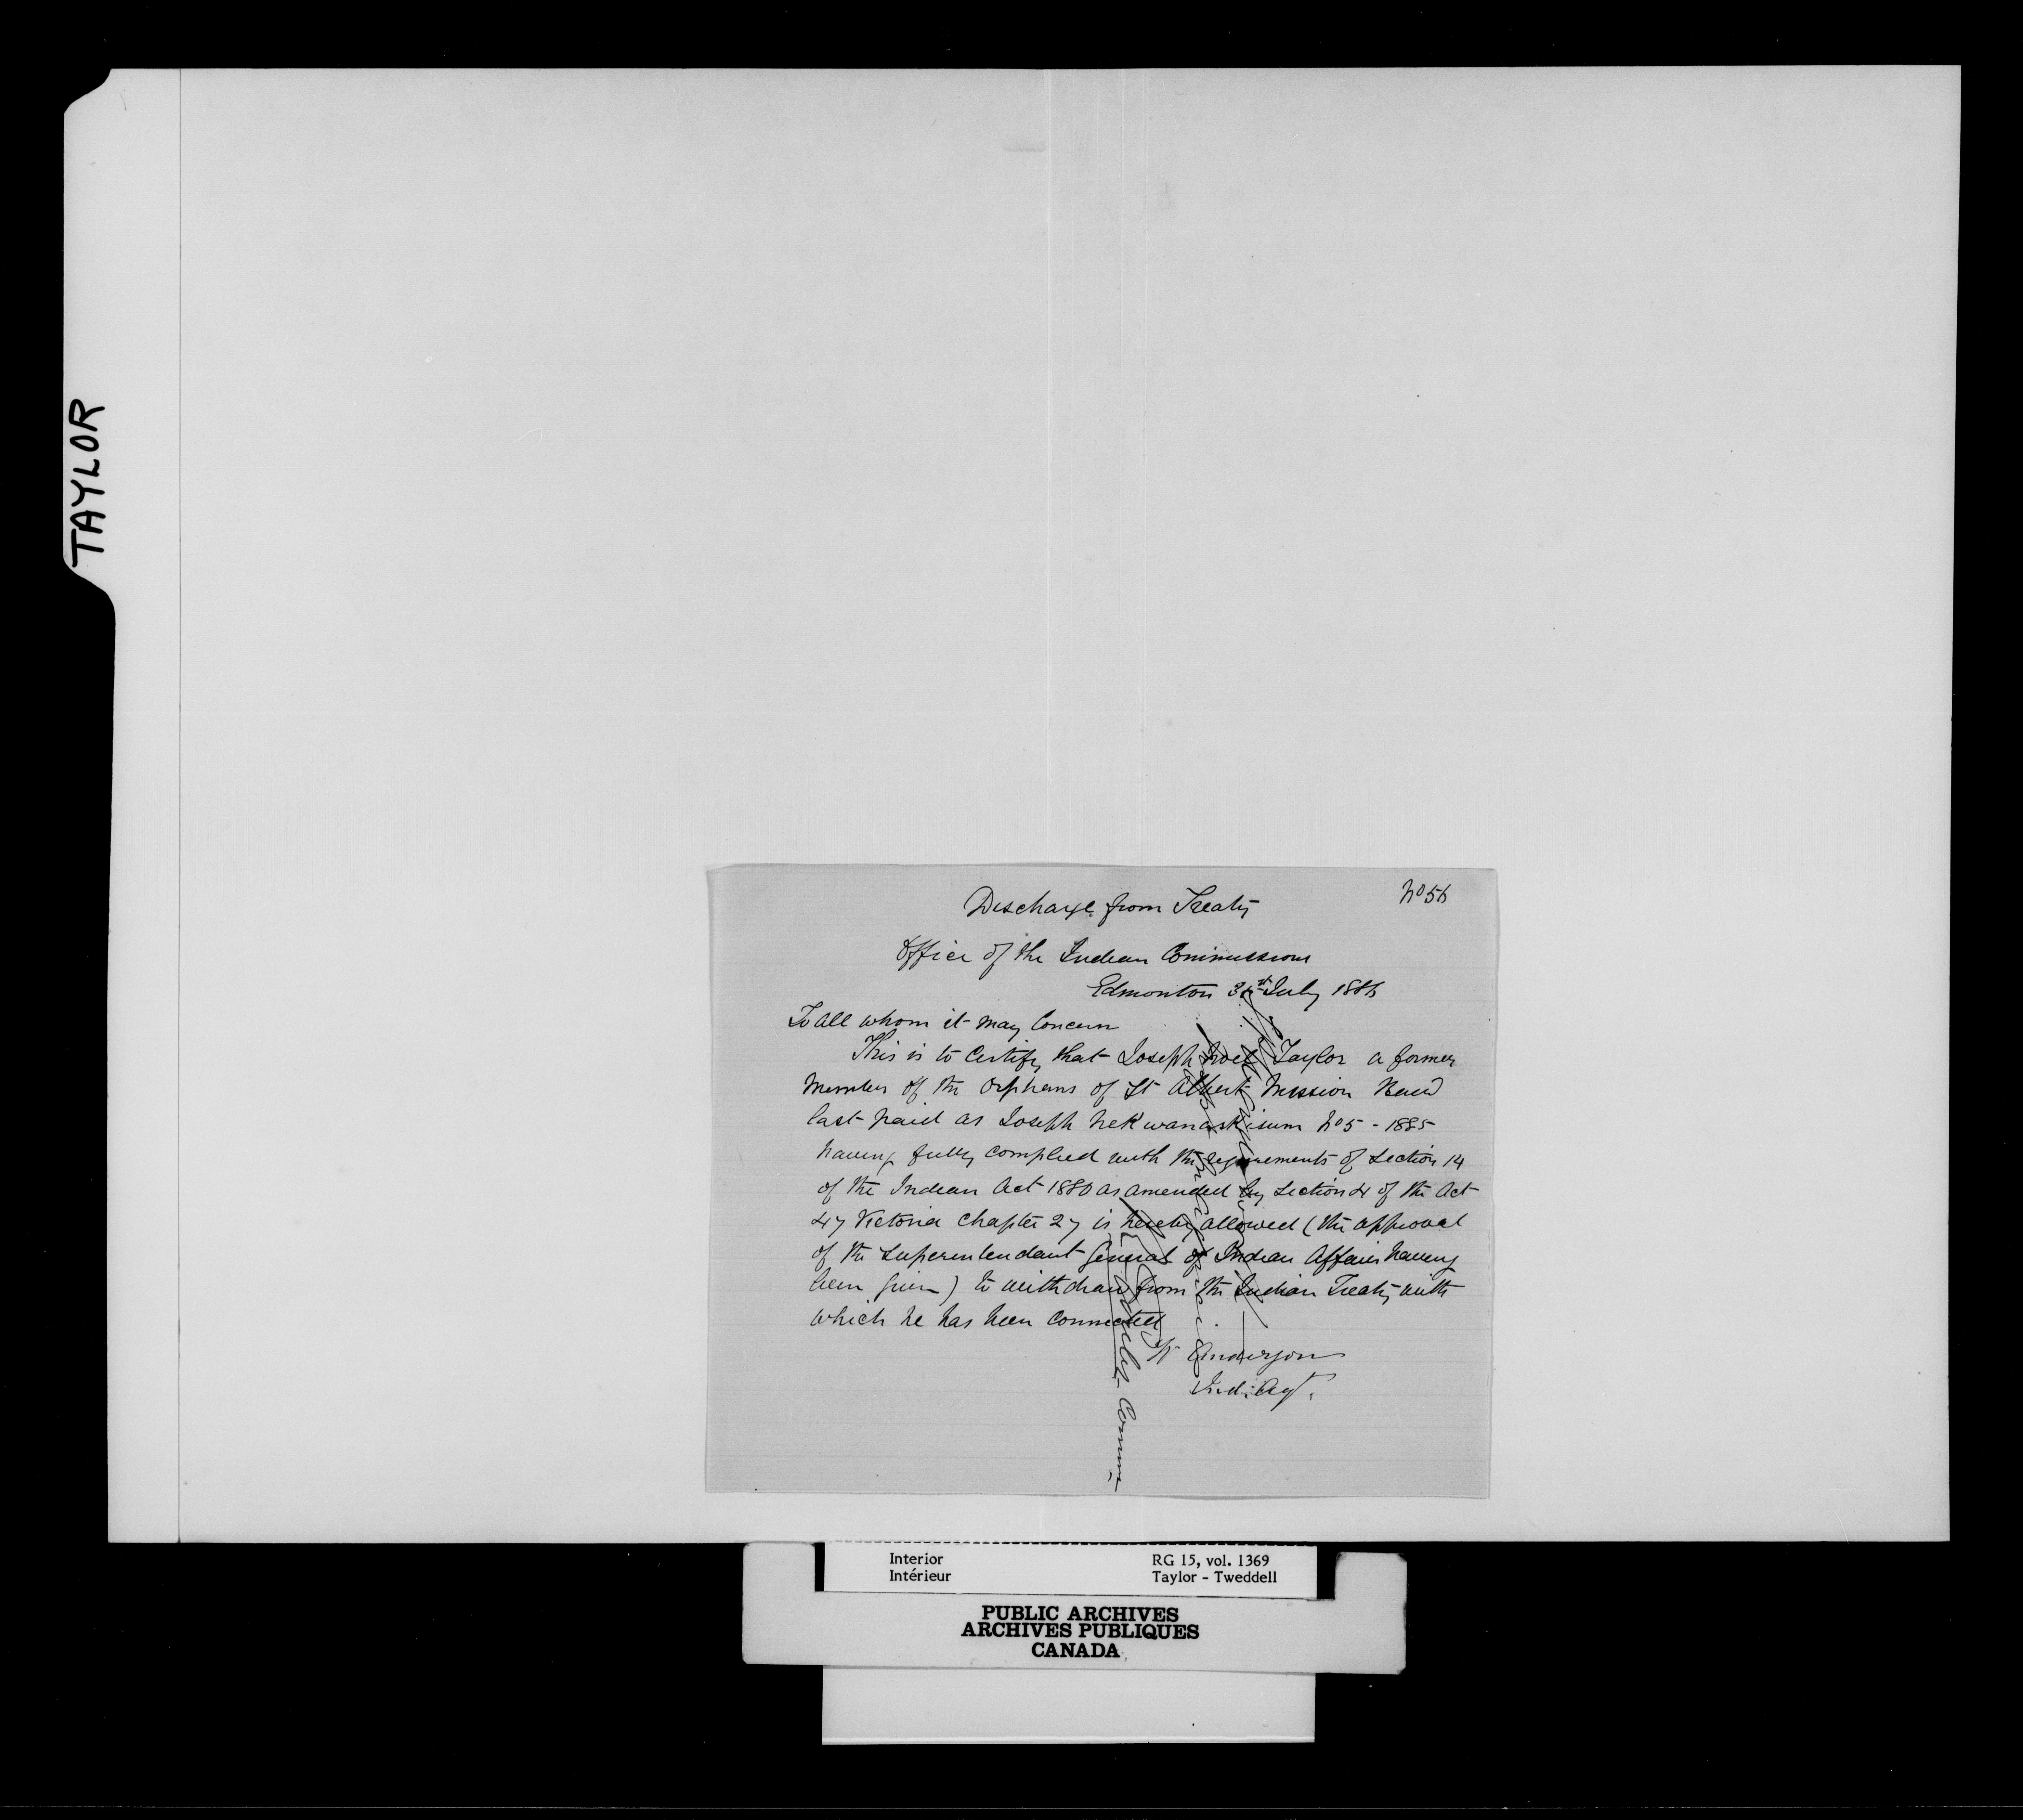 TAYLOR
No 56
Discharge from Treaty
Office of the Indian Commissioner
Edmonton 31st July 1886
To all whom it may Concern
This is to Certify that Joseph Noel Taylor a former
Member of the Orphans of St Albert Mission Band
last paid as Joseph No 5 - 1885
having fully complied with the requirements of Section 14
of the Indian Act 1880 as amended by Section 4 of the Act
47 Victoria Chapter 27 is hereby allowed (the approval
of the Superintendant General of Indian Affairs having
been given) to withdraw from the Indian Treaty with
which he has been connected
W Anderson
Ind: Agt.
Interior
Intérieur
RG 15, vol. 1369
Taylor - Tweddell
PUBLIC ARCHIVES
ARCHIVES PUBLIQUES
CANADA